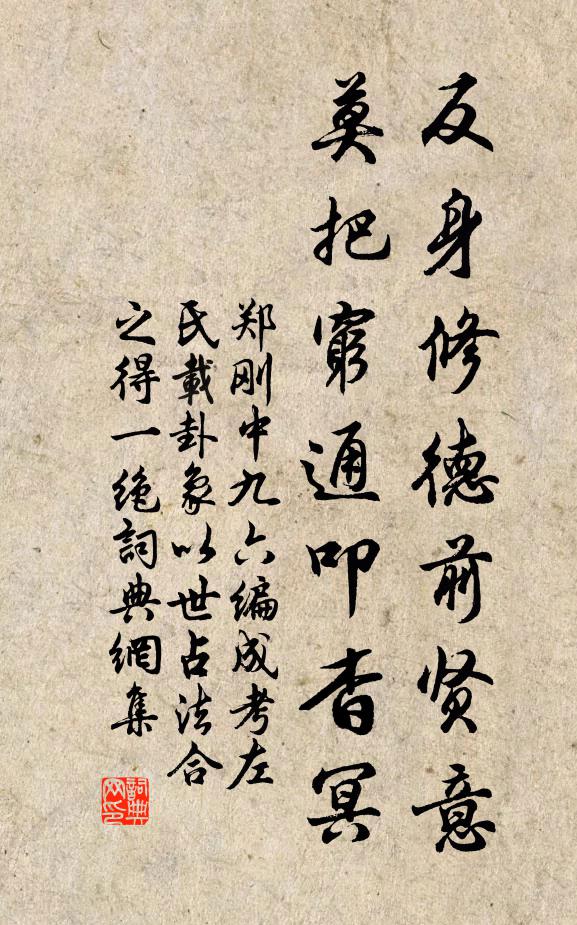 反身修德前贤意
莫把窮通叩杳冥
郑刚中九六编成考左
氏載卦象以世占法合
之得一绝詞典網集
詞典網印